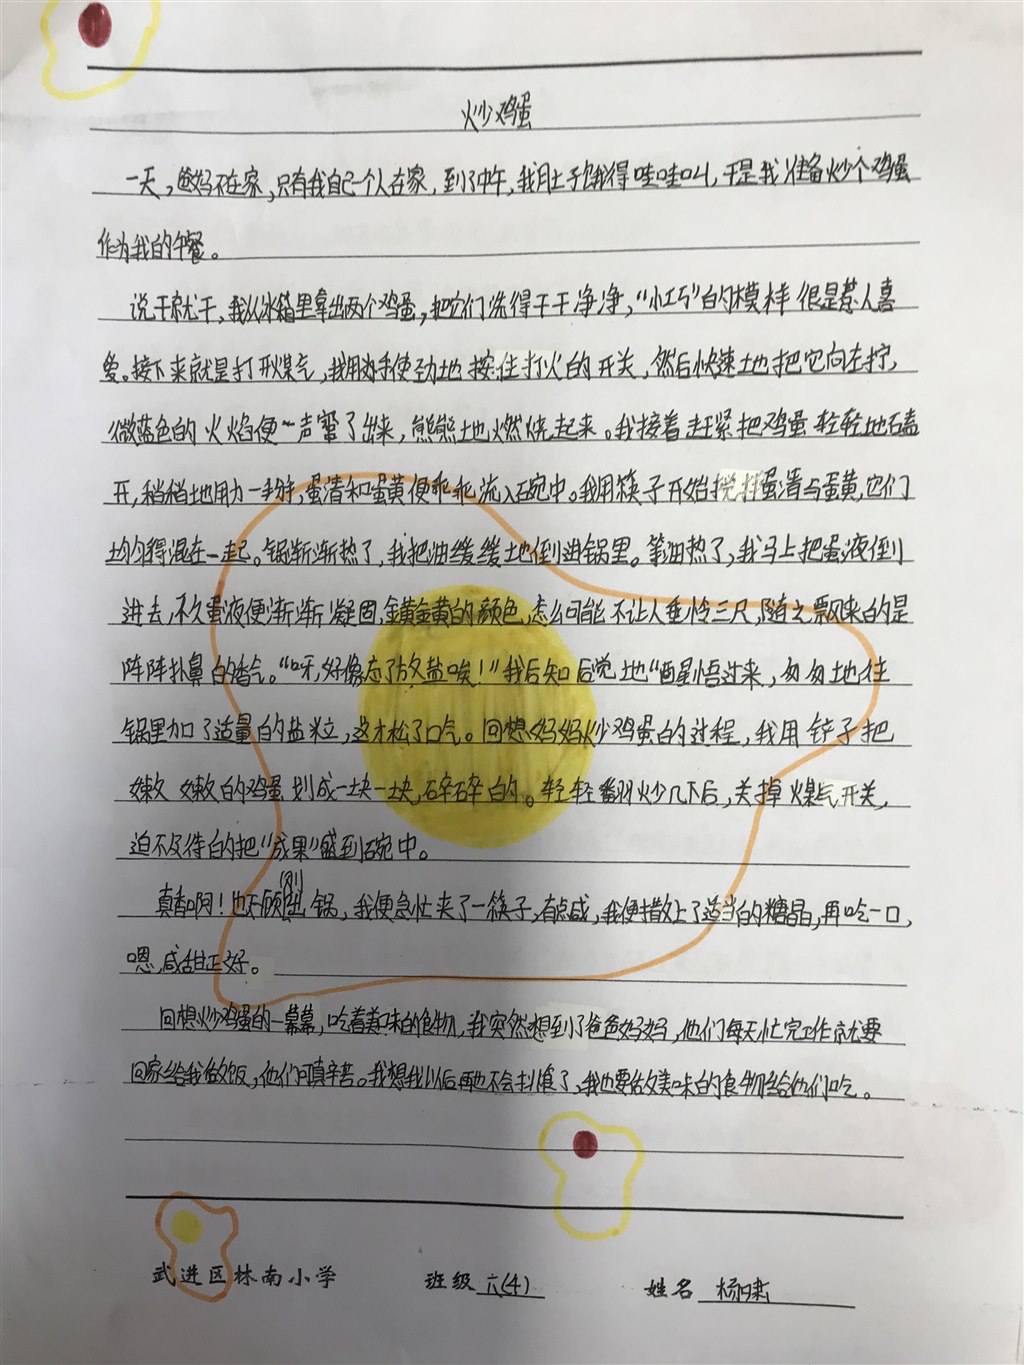 炒鸡蛋
一天，爸妈不在家，只有我自己一个人在家，到了中午，我肚子饿得哇哇叫，于是我准备炒个鸡蛋
作为我的午餐。
说干就干，我从冰箱里拿出两个鸡蛋，把它们洗得干干净净，“小巧”的模样很是惹人喜
爱。接下来就是打开煤气，我用力手使劲地按住打火的开关，然后快速地把它向左拧，
微蓝色的火焰便一声窜了出来，熊熊地燃烧起来。我接着赶紧把鸡蛋轻轻地磕
开，稍稍地用力一掰，蛋清和蛋黄便乖乖流入碗中。我用筷子开始搅拌蛋清与蛋黄，它们
均匀得混在一起。锅渐渐热了，我把油缓缓地倒进锅里。等油热了，我马上把蛋液倒
进去，不久蛋液便渐渐凝固，金黄金黄的颜色，怎么可能不让人垂怜三尺，随之飘来的是
阵阵扑鼻的香气。“呀，好像忘了放盐唉！”我后知后觉地“醒悟过来，匆匆地往
锅里加了适量的盐粒，这才松了口气。回想妈妈炒鸡蛋的过程，我用铲子把
嫩嫩的鸡蛋划成一块一块，碎碎的。轻轻翻炒几下后，关掉煤气开关，
迫不及待的把“成果”盛到碗中。
真香啊！也不顾刚出锅，我便急忙夹了一筷子，有点咸，我便撒上了适当的糖晶，再吃一口，
嗯，咸甜正好。
回想炒鸡蛋的一幕幕，吃着美味的食物，我突然想到了爸爸妈妈，他们每天忙完工作就要
回家给我做饭，他们可真辛苦。我想我以后再也不会扌懒了，我也要做美味的食物给他们吃。
武进区林南小学 班级 六(4) 姓名 杨啸